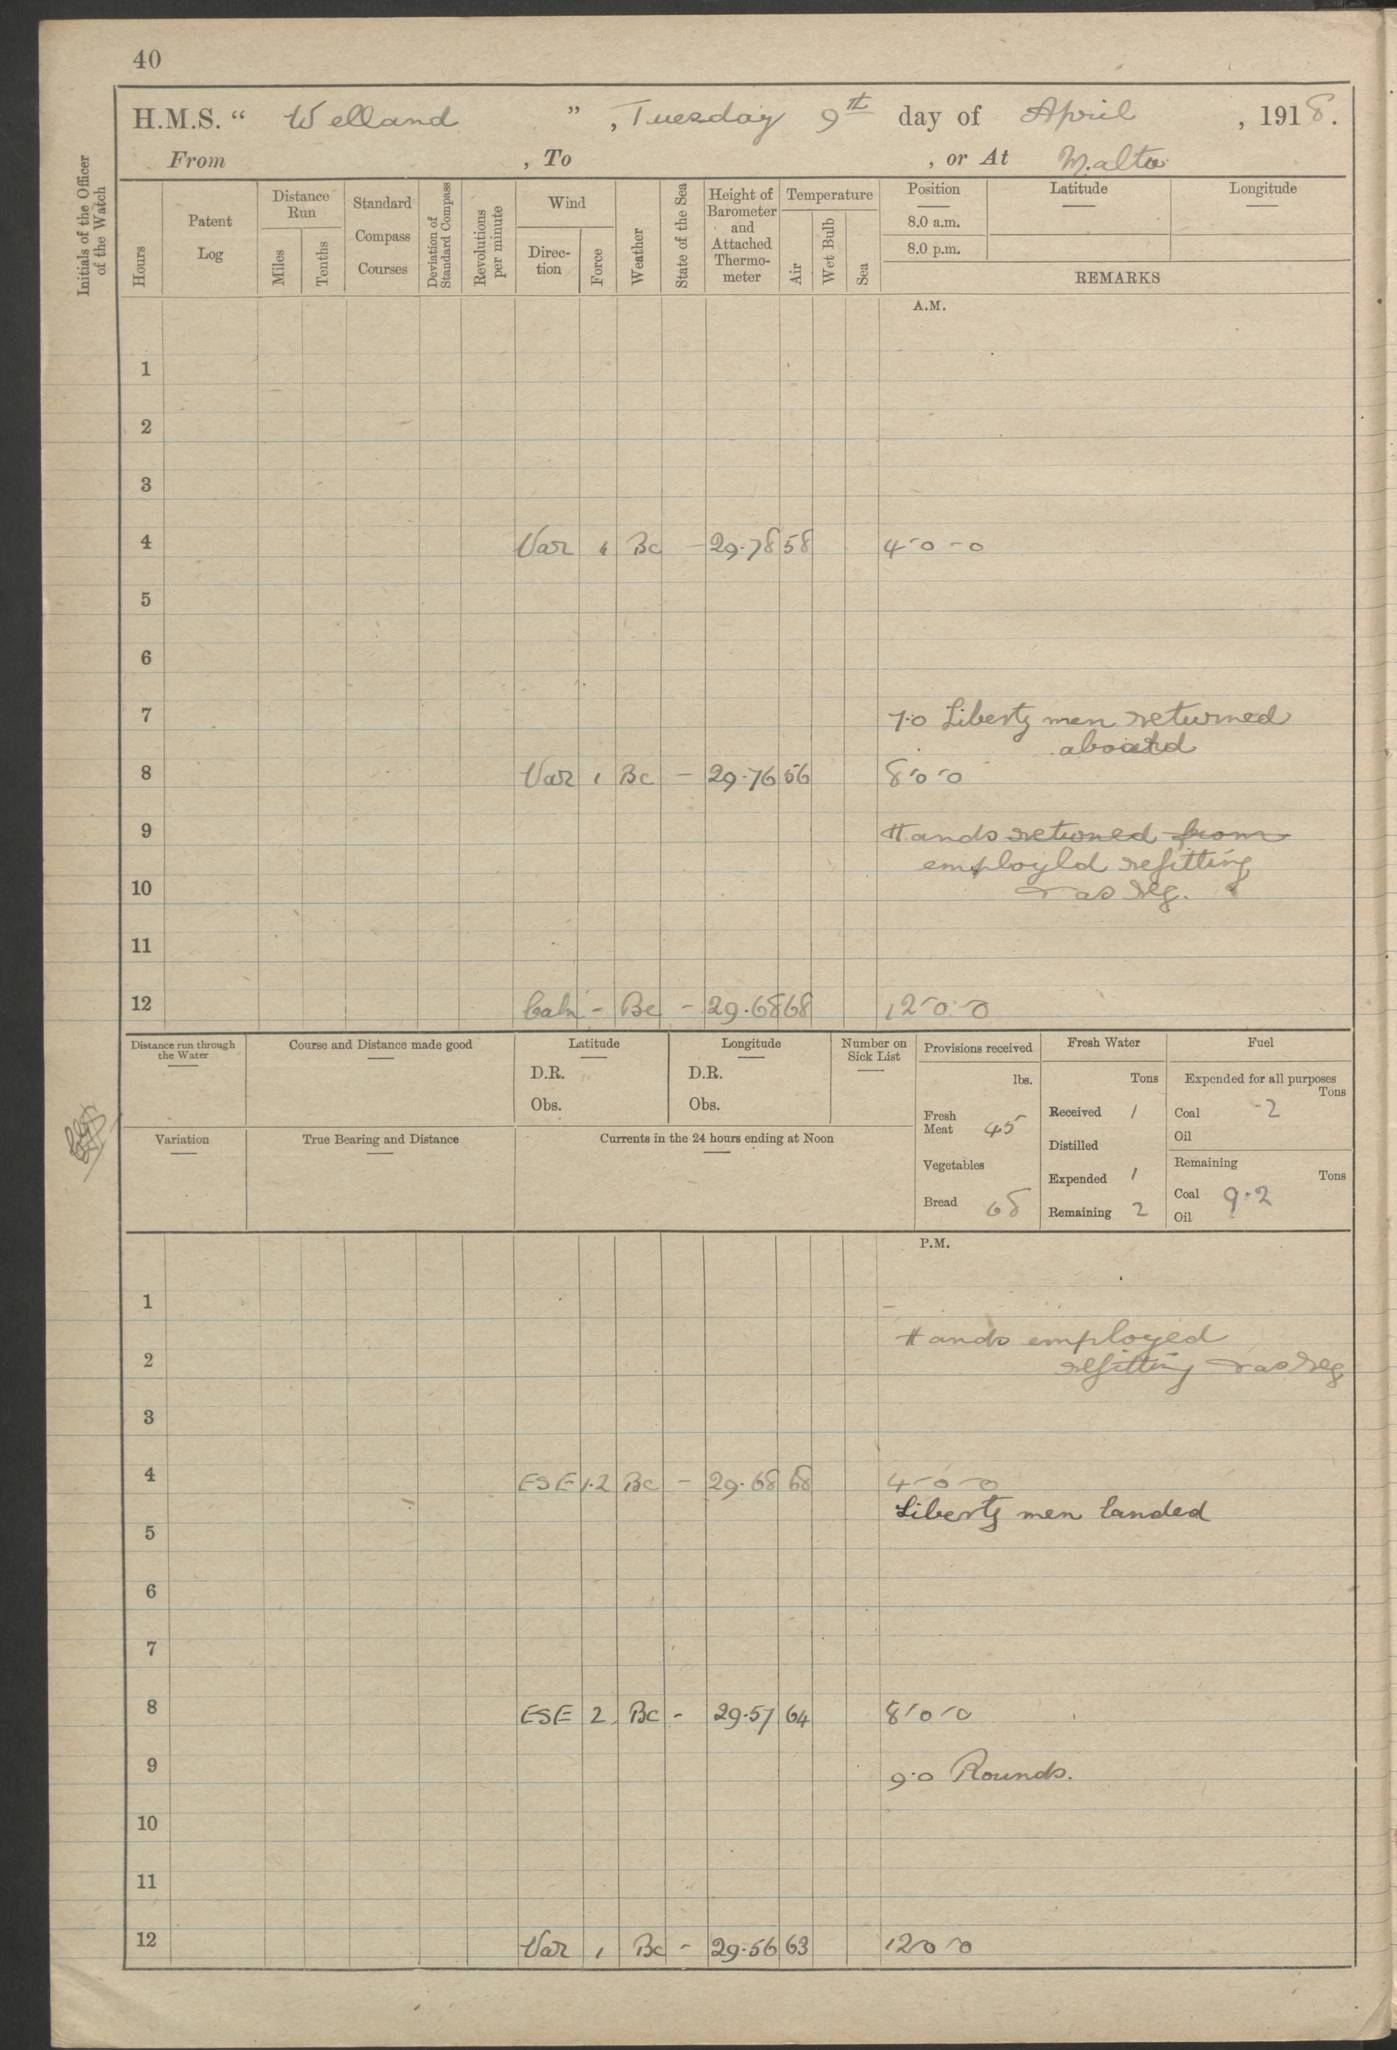 40
H.M.S. “ Welland ” , Tuesday 9th day of April , 1918.
From , To , or At Malta
Initials of the Officer of the Watch
Hours
Patent Log
Distance Run
Miles
Tenths
Standard Compass Courses
Deviation of Standard Compass
Revolutions per minute
Wind
Direc- tion
Force
Weather
State of the Sea
Height of Barometer and Attached Thermo- meter
Temperature
Air
Wet Bulb
Sea
Position
8.0 a.m.
8.0 p.m.
Latitude
Longitude
REMARKS
A.M.
1
2
3
4 Var 1 Bc - 29.78 58 4-0-0
5
6
7 7.0 Liberty men returned
aboard
8 Var 1 Bc - 29.76 56 8-0-0
9 Hands retuned from
employld refitting
10 as reg.
11
12 Calm - Bc - 29.68 68 12-0-0
Distance run through the Water
Course and Distance made good
Latitude
D.R.
Obs.
Longitude
D.R.
Obs.
Number on Sick List
Provisions received
lbs.
Fresh Meat 45
Vegetables
Bread 68
Fresh Water
Tons
Received 1
Distilled
Expended 1
Remaining 2
Fuel
Expended for all purposes
Tons
Coal ·2
Oil
Remaining
Tons
Coal 9.2
Oil
Variation
True Bearing and Distance
Currents in the 24 hours ending at Noon
P.M.
1
Hands employed
2 refitting as reg
3
4 ESE 1.2 Bc - 29.68 68 4-0-0
Liberty men landed
5
6
7
8 ESE 2 Bc - 29.57 64 8-0-0
9 9.0 Rounds.
10
11
12 Var 1 Bc - 29.56 63 12-0-0